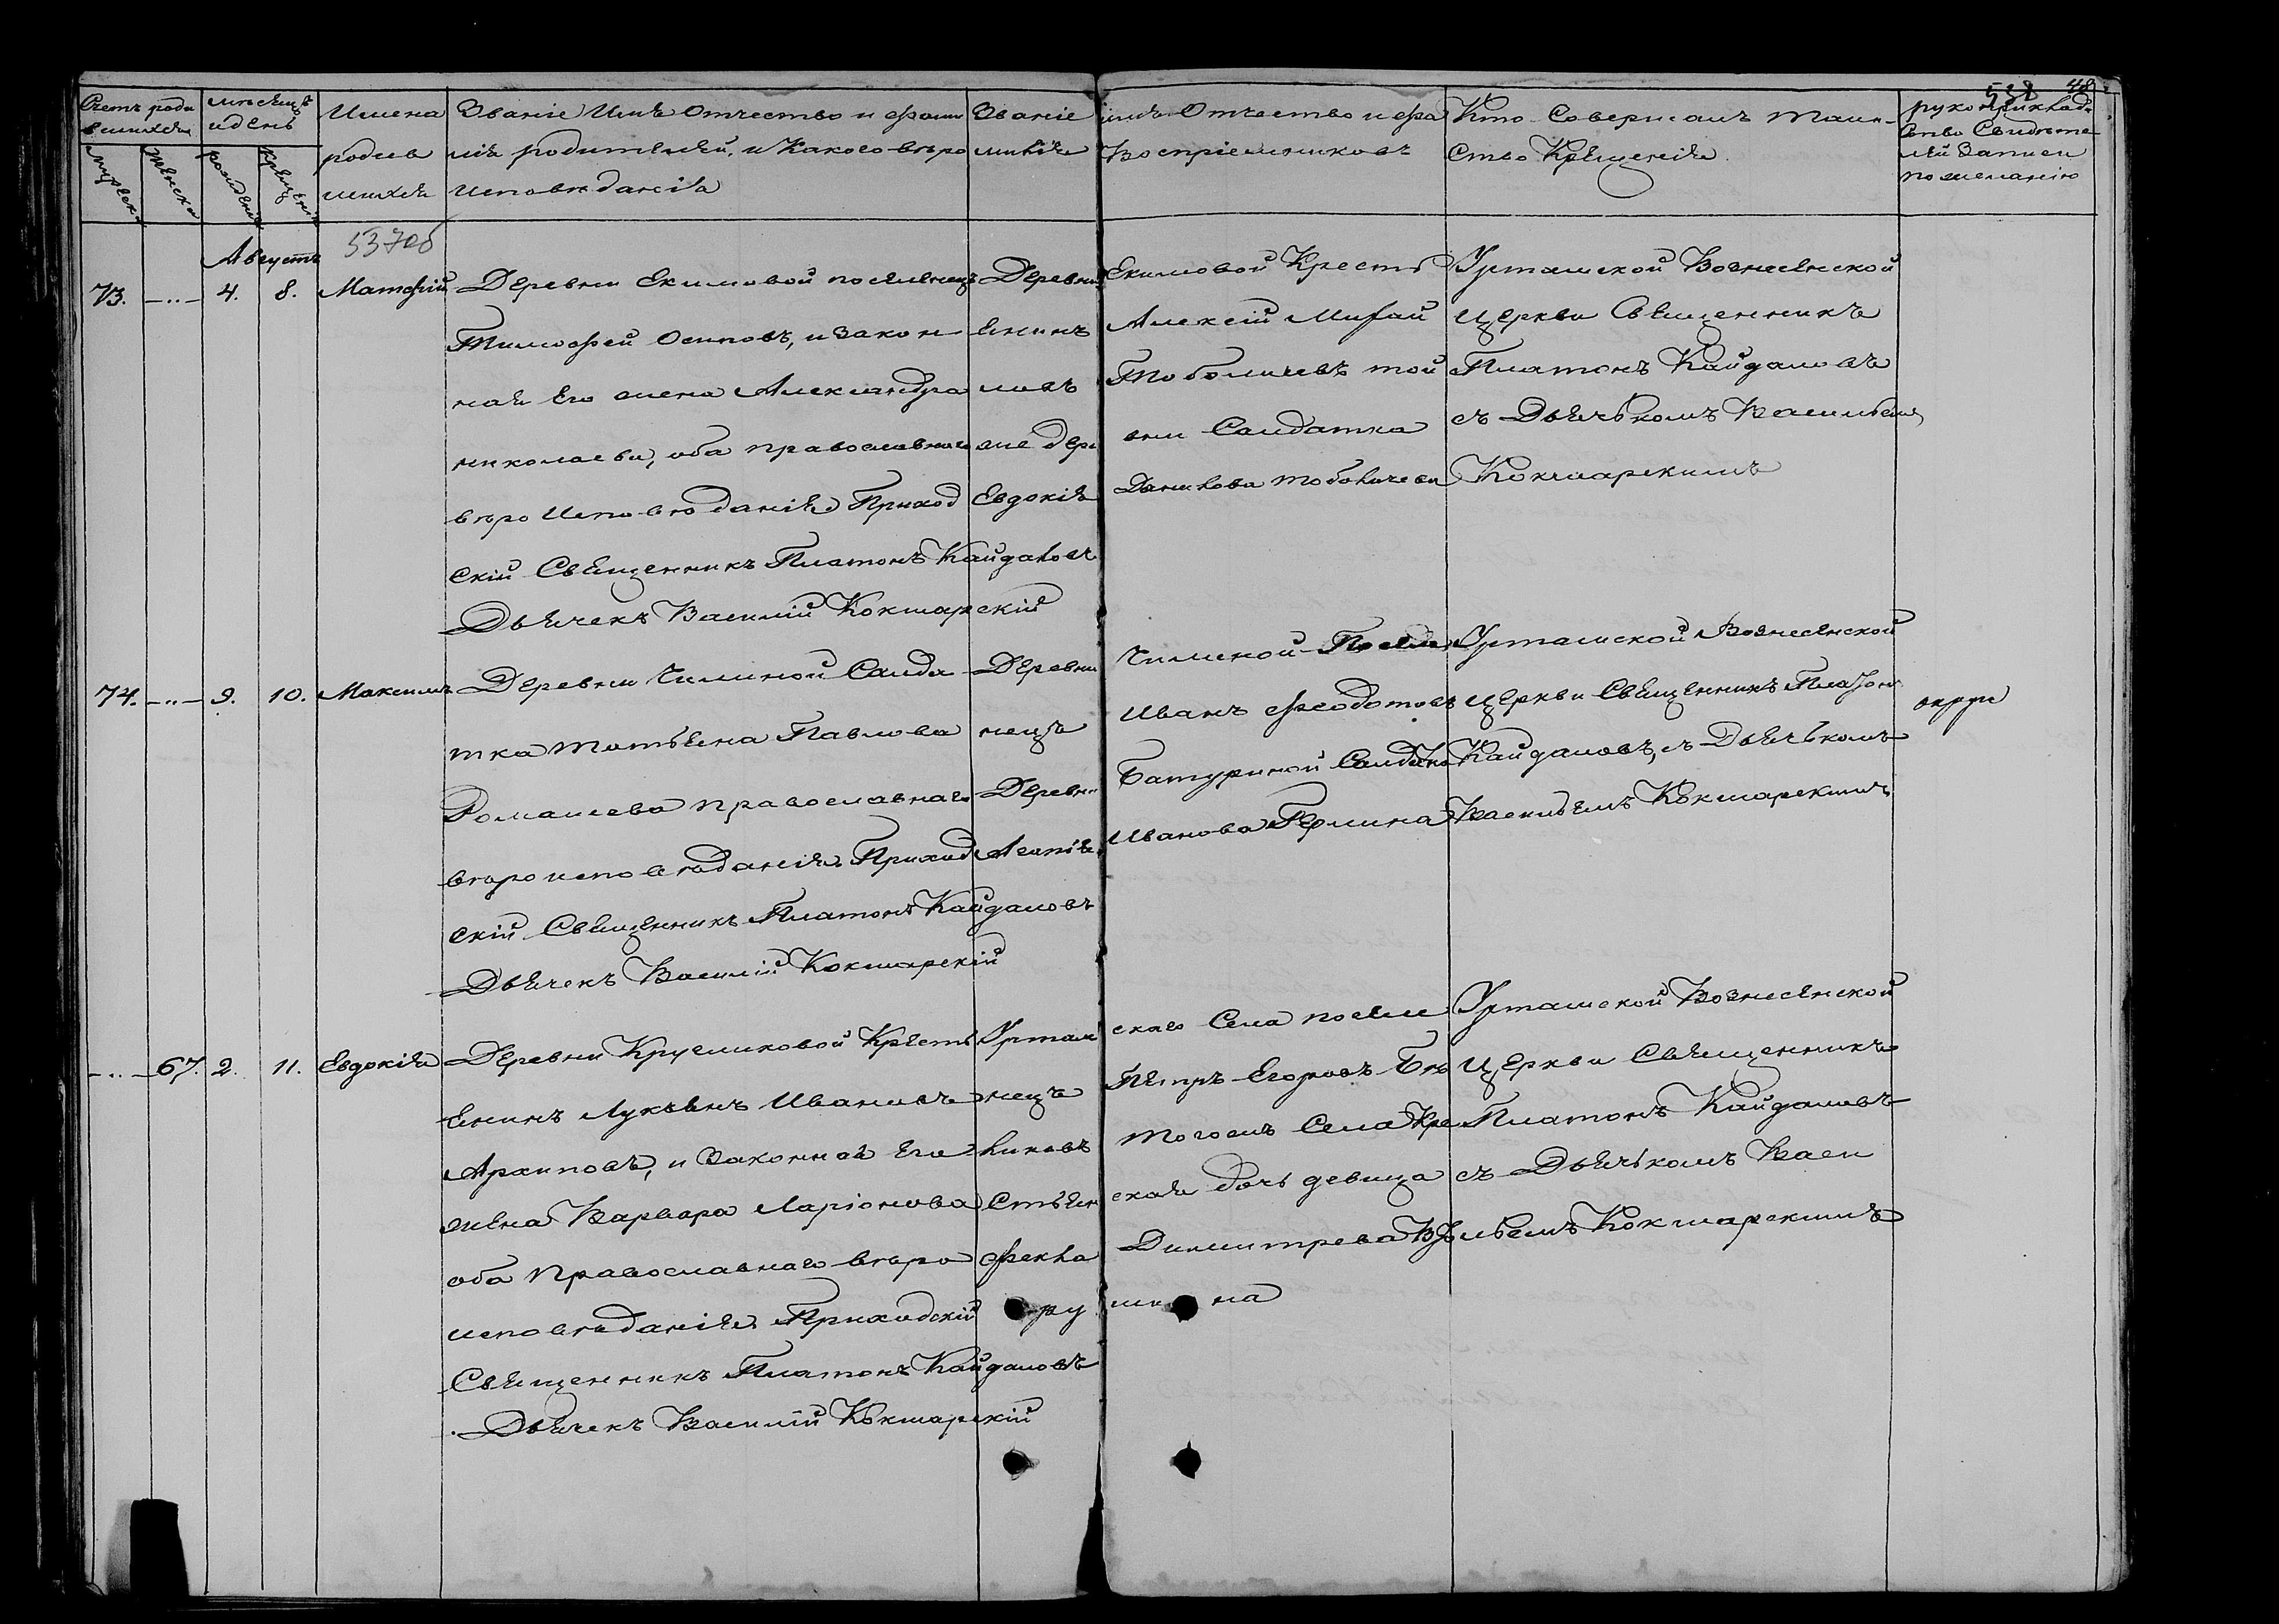 538 48
Счетъ роди
вшихся
мѣсяцъ
и день
Имена
родив
шихся
Званіе Имя Отчество и фами
лія родителей, и Какого вѣро
исповѣданія
Званіе имя Отчество и фа
милія Воспріемниковъ
Кто Совершалъ Таин-
ство Крещенія
рукоприклад
ство Свидѣте
лей Записи
по желанію
мужска
женска
рожденія
крещенія
537об
Августъ
73. —..— 4. 8. Матфій
Деревни Екимовой поселенецъ
Тимофей Осиповъ, и закон
ная Его жена Александра
николаева, оба православнаго
вѣро Исповѣданія Приход
скій Священникъ Платонъ Кайдаловъ
Дьячекъ Василій Кокшарскій
Деревни Екимовой Кресть
янинъ Алексій Михай
ловъ Тоболичевъ той
же дере вни Салдатка
Евдокія Данилова тоболичева
Урташской Вознесенской
Церкви Священникъ
Платонъ Кайдаловъ
съ Дьячькомъ Васильемъ
Кокшарскимъ
74. —..— 9. 10. Максимъ
Деревни Чилиной Салда
тка татьяна Павлова
Ромашева православнаго
вѣро исповѣданія Приход
скій Священникъ Платонъ Кайдаловъ
Дьячекъ Василій Кокшарскій
Деревни Чилиной Поселе
нецъ Иванъ Феодотовъ
Деревни Батуриной Салдатка
Агапія Иванова
Урташской Вознесенской
Церкви Священникъ Платонъ
Кайдаловъ, съ Дьячькомъ
Васильемъ Кокшарскимъ
—..— 67. 2. 11. Евдокія
Деревни Кругликовой Кресть
янинъ Лукьянъ Ивановъ
Архиповъ, и Законная Его
жена Варвара Ларіонова
оба Православнаго вѣро
исповѣданія Приходскій
Священникъ Платонъ Кайдаловъ
Дьячекъ Василій Кокшарскій
Урташ скаго Села поселе
нецъ Петръ Егоровъ Бѣ
ликовъ тогожъ Села Кре
стьян ская дочь девица
Фекла Димитрева
Урташской Вознесенской
Церкви Священникъ
Платонъ Кайдаловъ
съ Дьячькомъ Васи
льемъ Кокшарскимъ